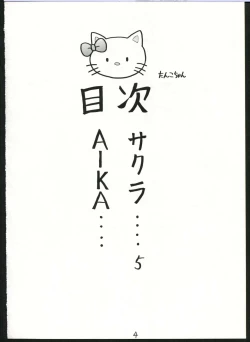 たんこちゃん
目次
サクラ‥‥‥5
AIKA‥‥‥
4